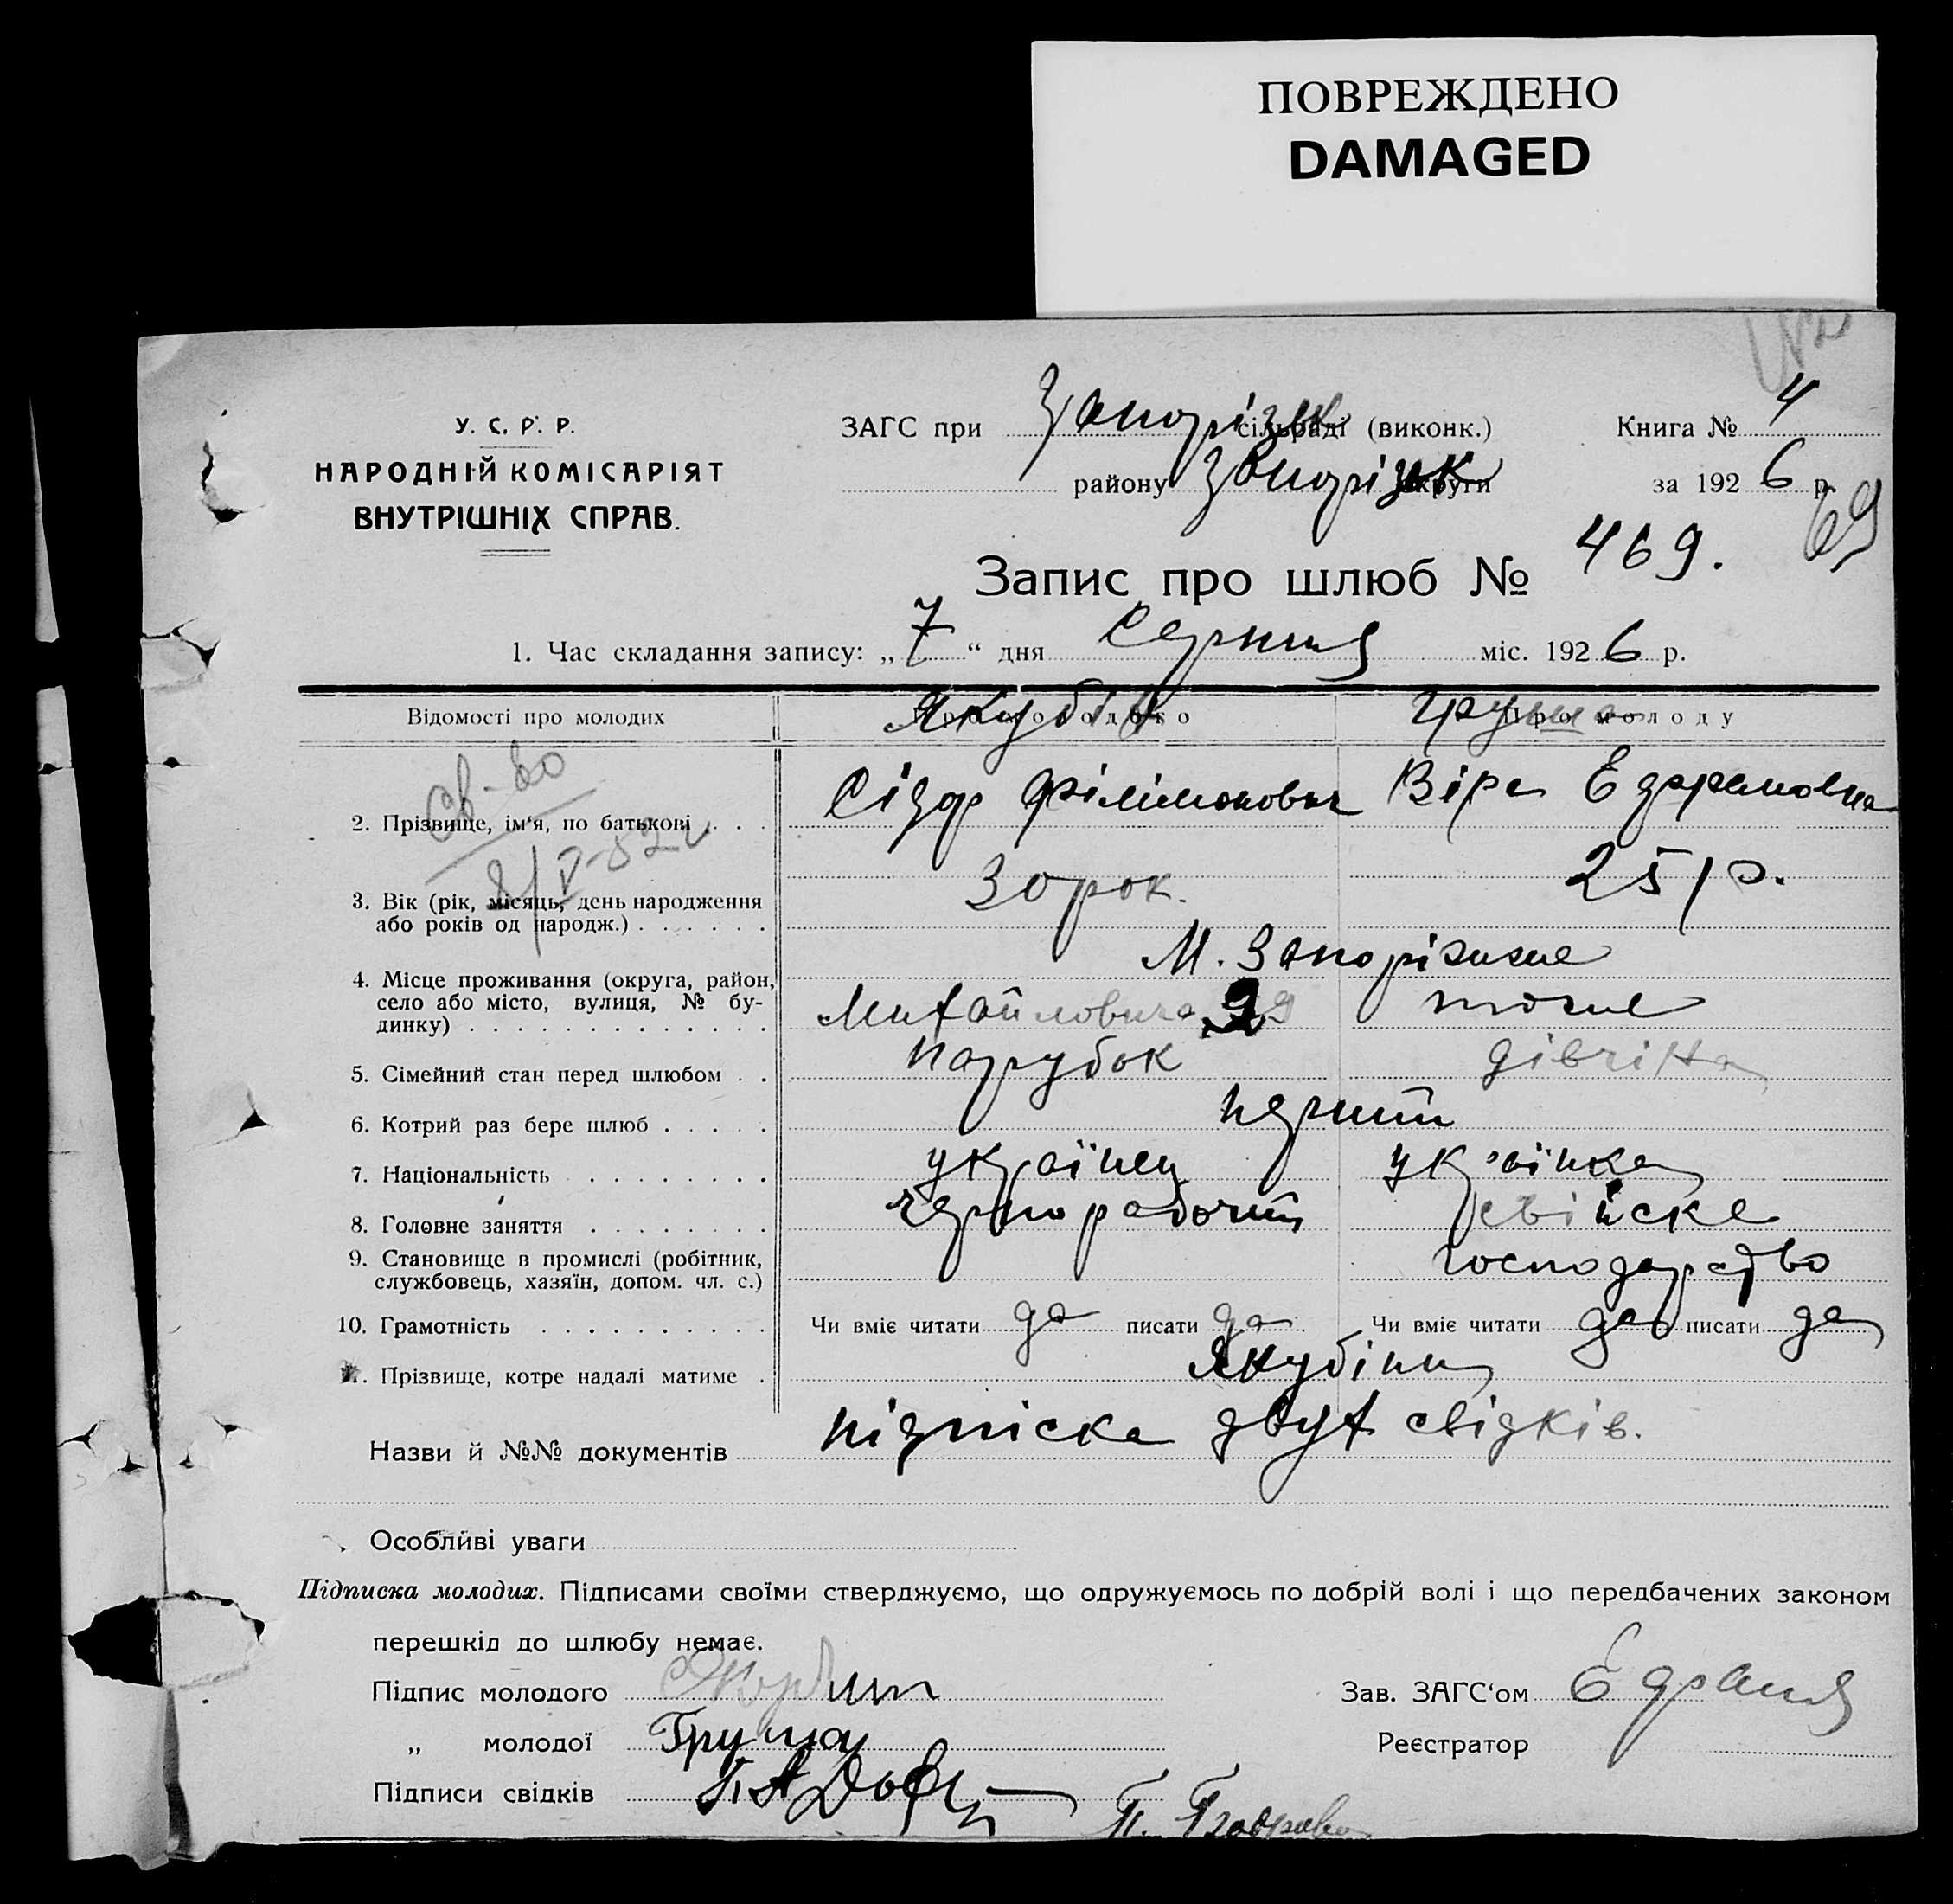 ПОВРЕЖДЕНО
DAMAGED
У. С. Р. Р.
НАРОДНІЙ КОМІСАРІЯТ
ВНУТРІШНІХ СПРАВ.
ЗАГС при Запорізьк сільраді (виконк.) Книга № 4
району Запорізьк округи за 1926 р.
69
Запис про шлюб № 469.
1. Час складання запису: „7“ дня Серпня міс. 1926 р.
Відомості про молодих Про молодого Про молоду
Якубін Груша
2. Прізвище, ім‘я, по батькові . . . Сізор Філімонович Віра Ефремовна
3. Вік (рік, місяць, день народження
або років од народж.) . . . . . . 30 рок. 25 р.
4. Місце проживання (округа, район,
село або місто, вулиця, № бу-
динку) . . . . . . . . . . . . . М. Запоріжжє
Михайловича 29 тоже
5. Сімейний стан перед шлюбом . . парубок дівчіна
6. Котрий раз бере шлюб . . . . . перший
7. Національність . . . . . . . . українец українка
8. Головне заняття . . . . . . . чернорабочий свійске
9. Становище в промислі (робітник,
службовець, хазяїн, допом. чл. с.) господарство
10. Грамотність . . . . . . . . . . Чи вміє читати да писати да Чи вміє читати да писати да
Прізвище, котре надалі матиме . Якубіни
Назви й №№ документів підпіска двух свідків.
Особливі уваги
Підписка молодих. Підписами своїми стверджуємо, що одружуємось по добрій волі і що передбачених законом
перешкід до шлюбу немає.
Підпис молодого Зав. ЗАГС‘ом
„ молодої Груша Реєстратор
Підписи свідків